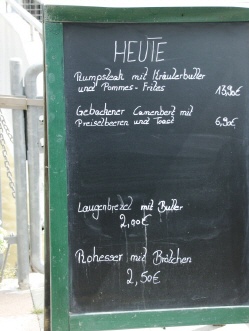 HEUTE
Rumpsteak mit Kräuterbutter
und Pommes-Frites 13,90€
Gebackener Camenbert mit
Preiselbeeren und Toast 6,90€
Laugenbrezel mit Butter
2,00€
Rohesser mit Brötchen
2,50€